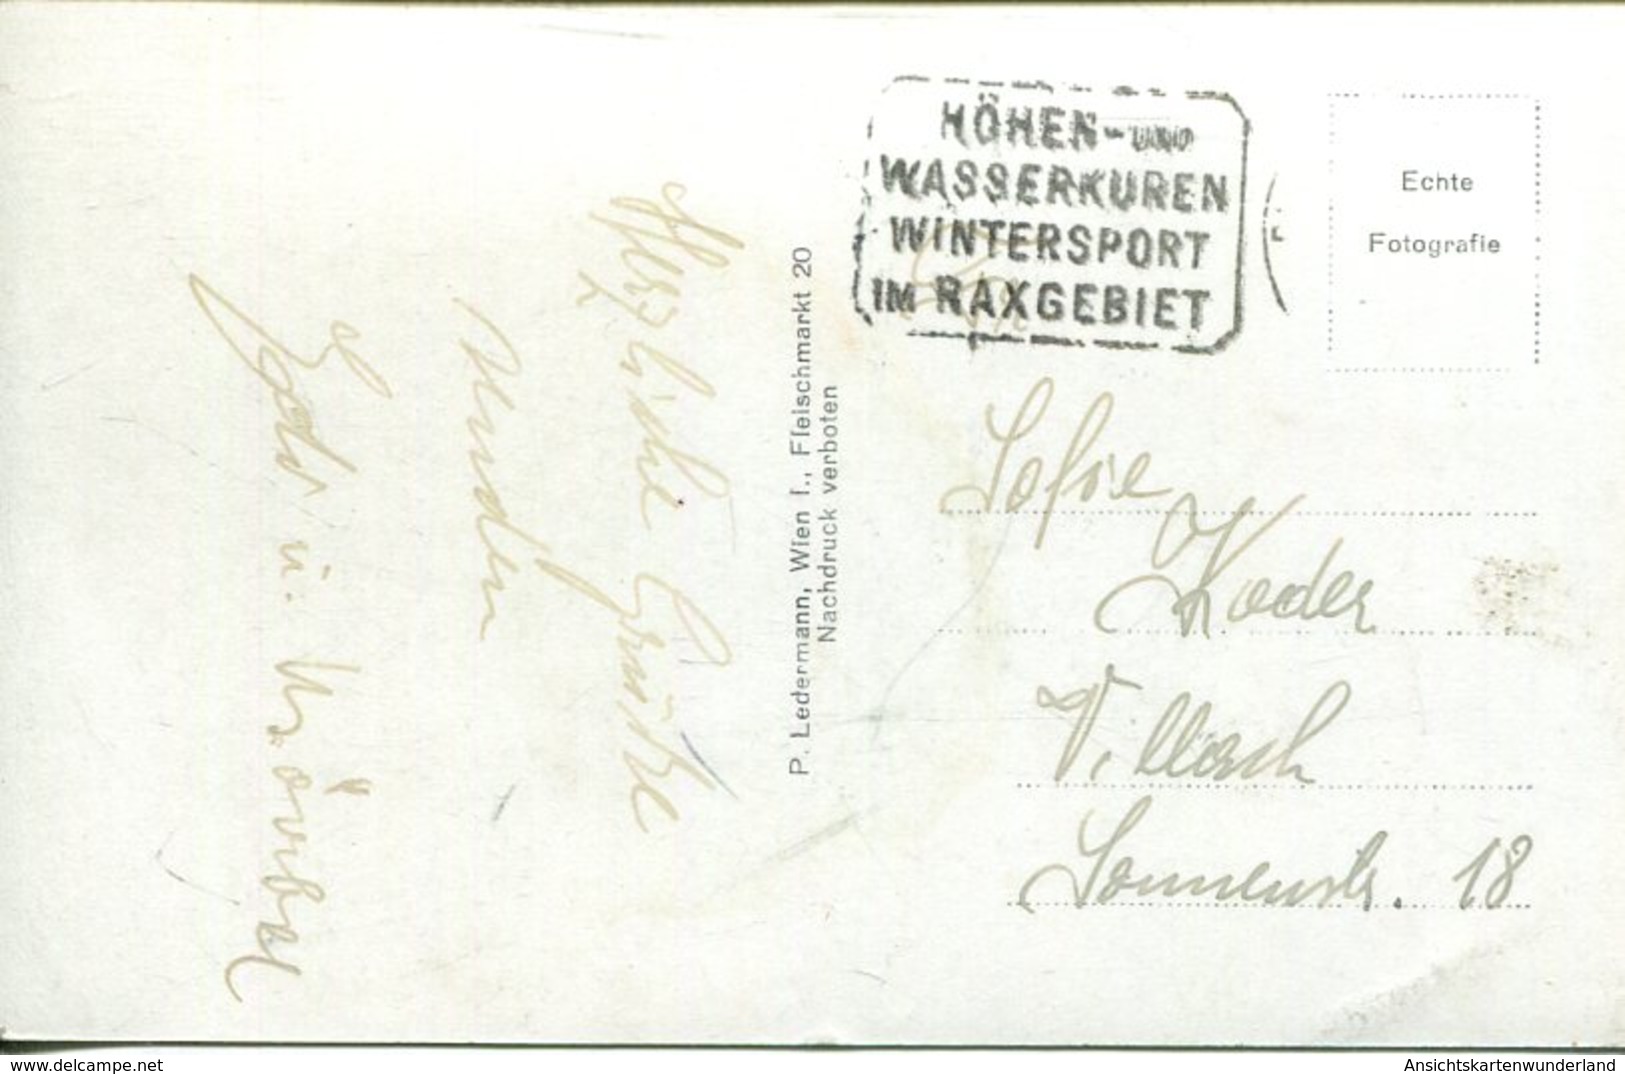 HÖHEN- UND
WASSERKUREN
WINTERSPORT
IM RAXGEBIET
Echte
Fotografie
P. Ledermann, Wien I., Fleischmarkt 20
Nachdruck verboten
Herzliche Grüße
senden
Edi u.
Sofie
Koder
Villach
Sonnenstr. 18
www.delcampe.net
Ansichtskartenwunderland